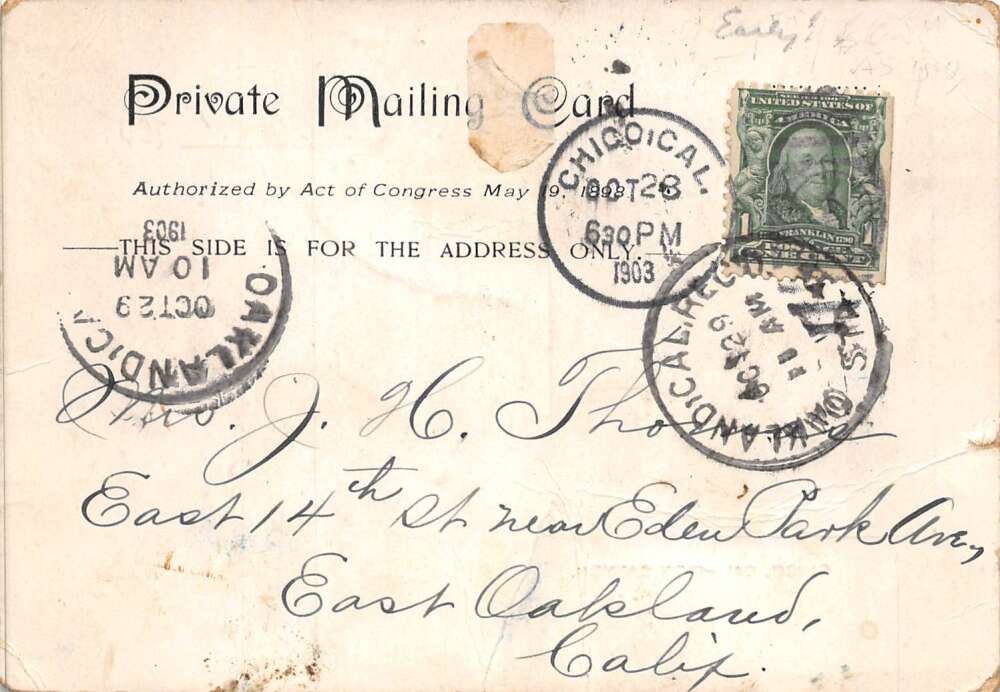 Early!
Private Mailing Card
Authorized by Act of Congress May 19, 1898
THIS SIDE IS FOR THE ADDRESS ONLY.
CHICO, CAL.
OCT 28
6 30 PM
1903
SERIES 1902
UNITED STATES OF AMERICA
FRANKLIN
1 1
ONE CENT
OAKLAND, C
OCT 29
10 AM
1903
OAKLAND, CAL. REC'D
OCT 29
11 AM
Mrs. J. H.
East 14th St near Eden Park Ave,
East Oakland,
Calif.